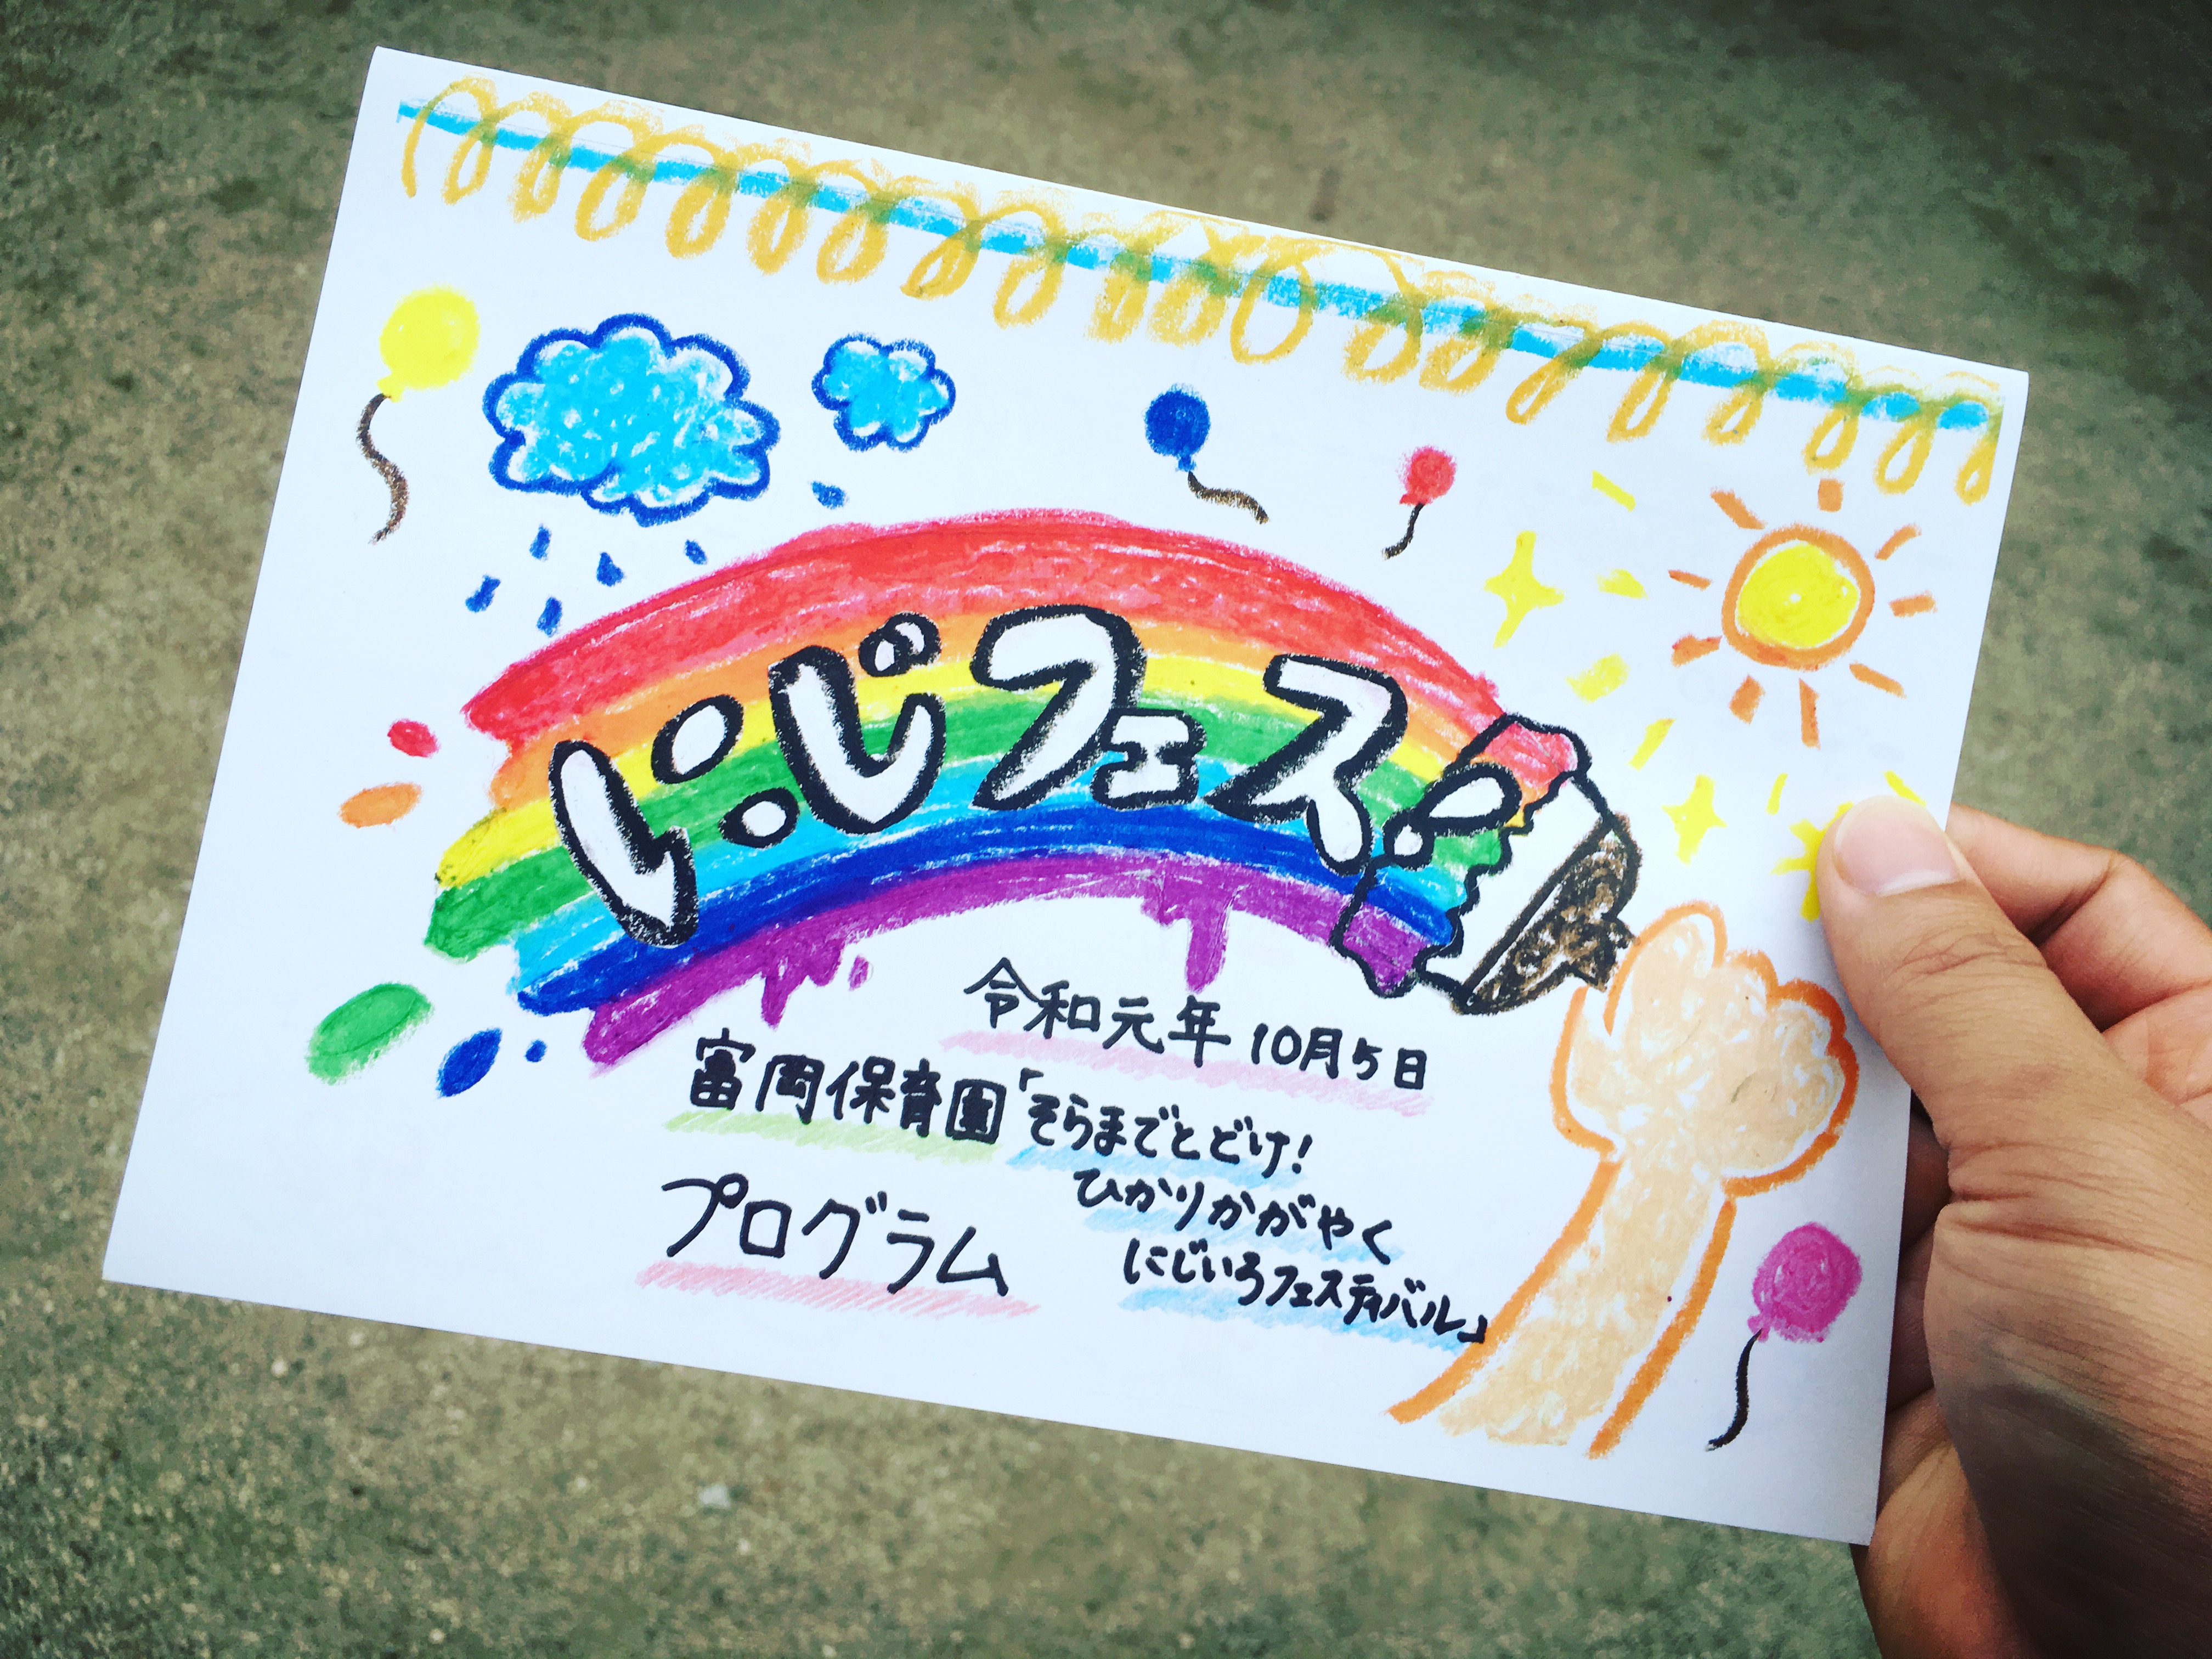 にじフェス!
令和元年10月5日
富岡保育園「そらまでとどけ!
ひかりかがやく
にじいろフェスティバル」
プログラム